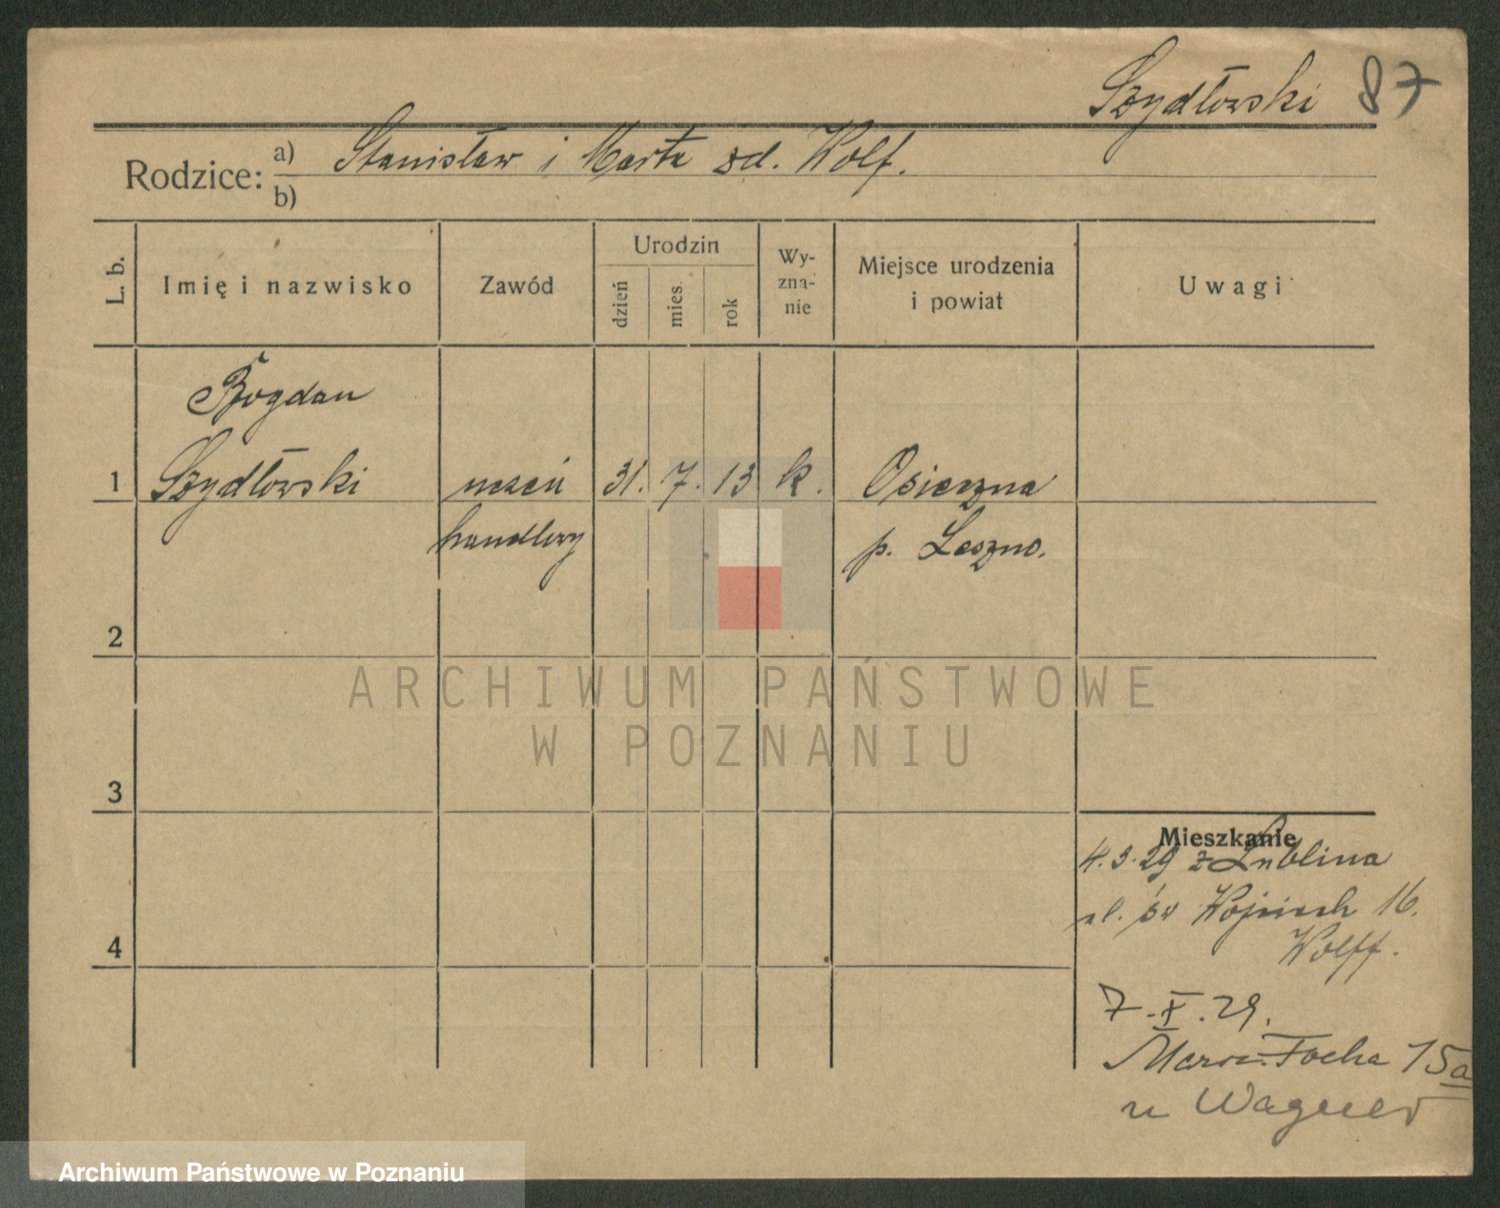 Szydłowski 87
Rodzice: a) Stanisław i Marta zd. Wolf.
b)
L. b.
Imię i nazwisko
Zawód
Urodzin
dzień
mies.
rok
Wy-
zna-
nie
Miejsce urodzenia
i powiat
Uwagi
Bogdan
1 Szydłowski uczeń 31. 7. 13 k. Osieczna
handlowy p. Leszno.
2
3
4
ARCHIWUM PAŃSTWOWE
W POZNANIU
Mieszkanie
4.3.29 z Lublina
ul. św Wojciech 16.
Wolff.
7.X.29.
Focha 15a
u Wagner
Archiwum Państwowe w Poznaniu